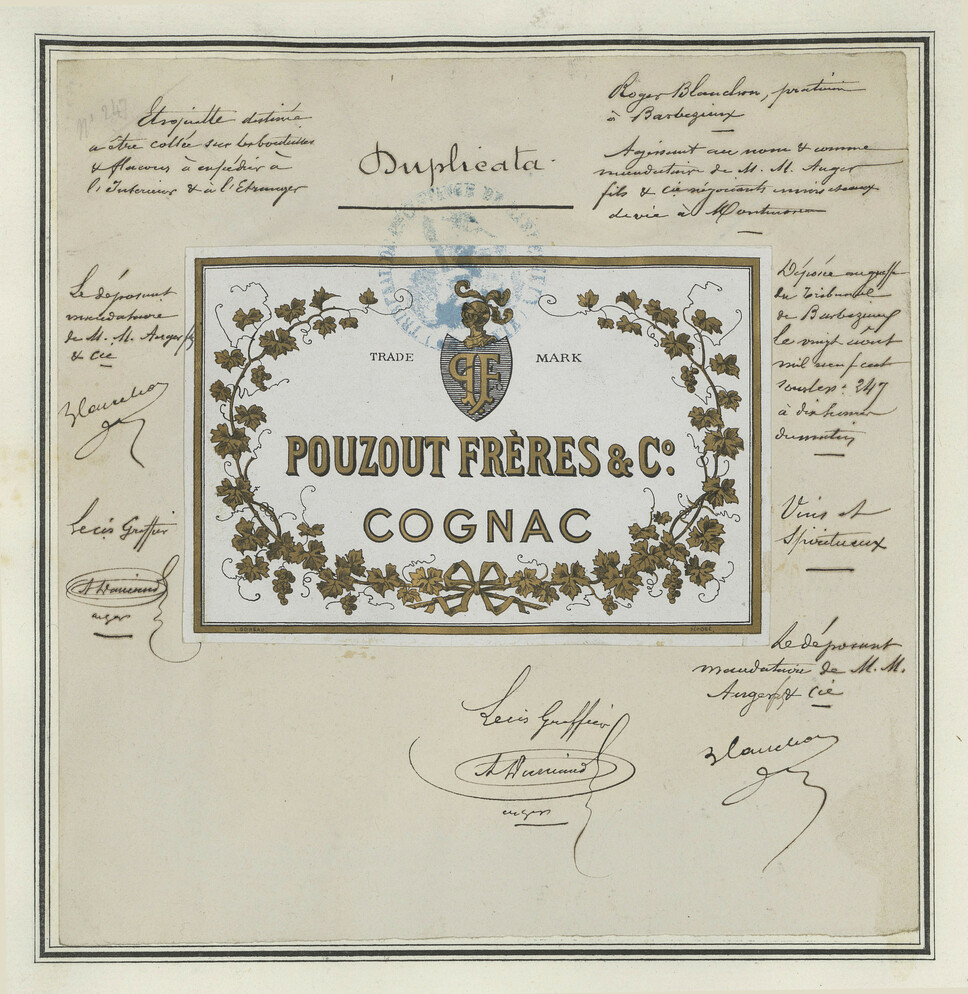 N° 247
Etiquette destinée
a être collée sur les bouteilles
& flacons à expédier à
l'Interieur & à l'Etranger
Duplicata
Roger Blanchon, praticien
à Barbezieux
Agissant au nom & comme
mandataire de M. M. Auger
fils & cie négociants
de vie à
Le déposant
mandataire
de M. M. Auger fs
& cie
Blanchon
Lecis Greffier
TRADE MARK
PF
POUZOUT FRÈRES & Co.
COGNAC
Déposée au greffe
du Tribunal
de Barbezieux
le vingt août
mil neuf cent
sous le no 247
à dix heures
du matin
Vins et
Spiritueux
Le déposant
mandataire de M. M.
Auger fs & cie
Blanchon
Lecis Greffier